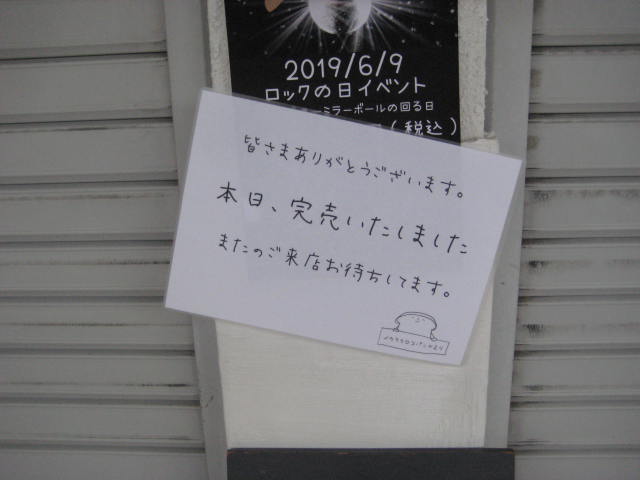 2019/6/9
ロックの日イベント
ミラーボールの回る日
(税込)
皆さまありがとうございます。
本日、完売いたしました
またのご来店お待ちしてます。